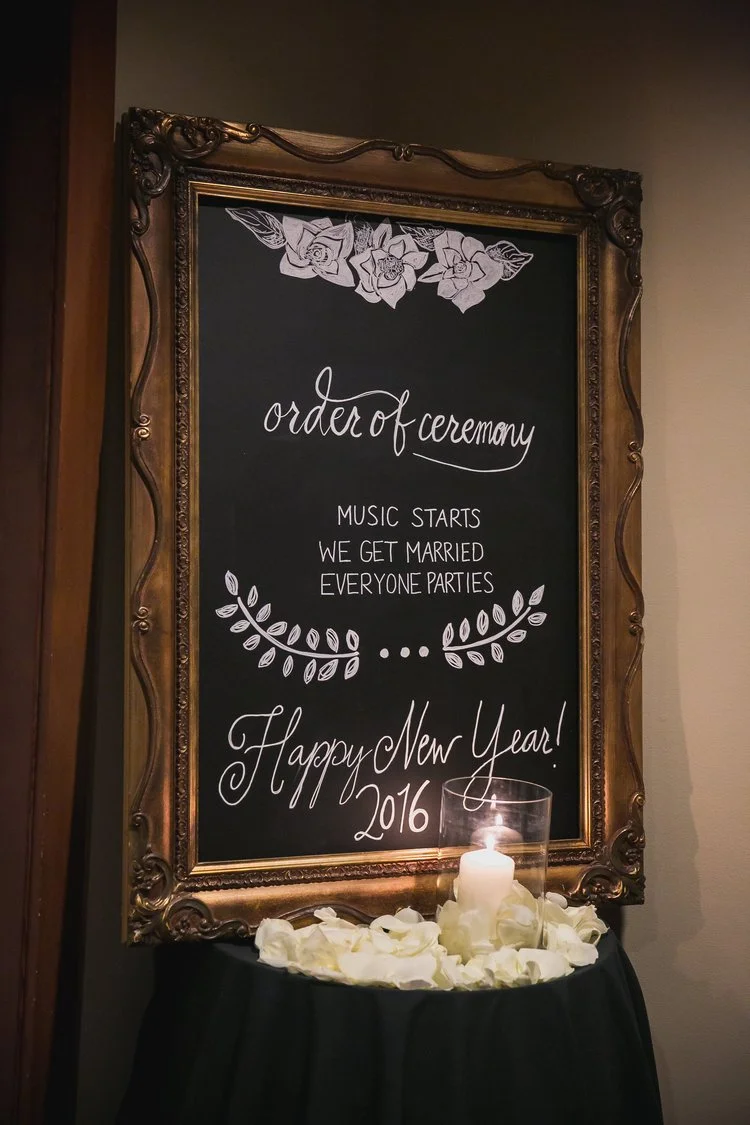 order of ceremony
MUSIC STARTS
WE GET MARRIED
EVERYONE PARTIES
Happy New Year!
2016